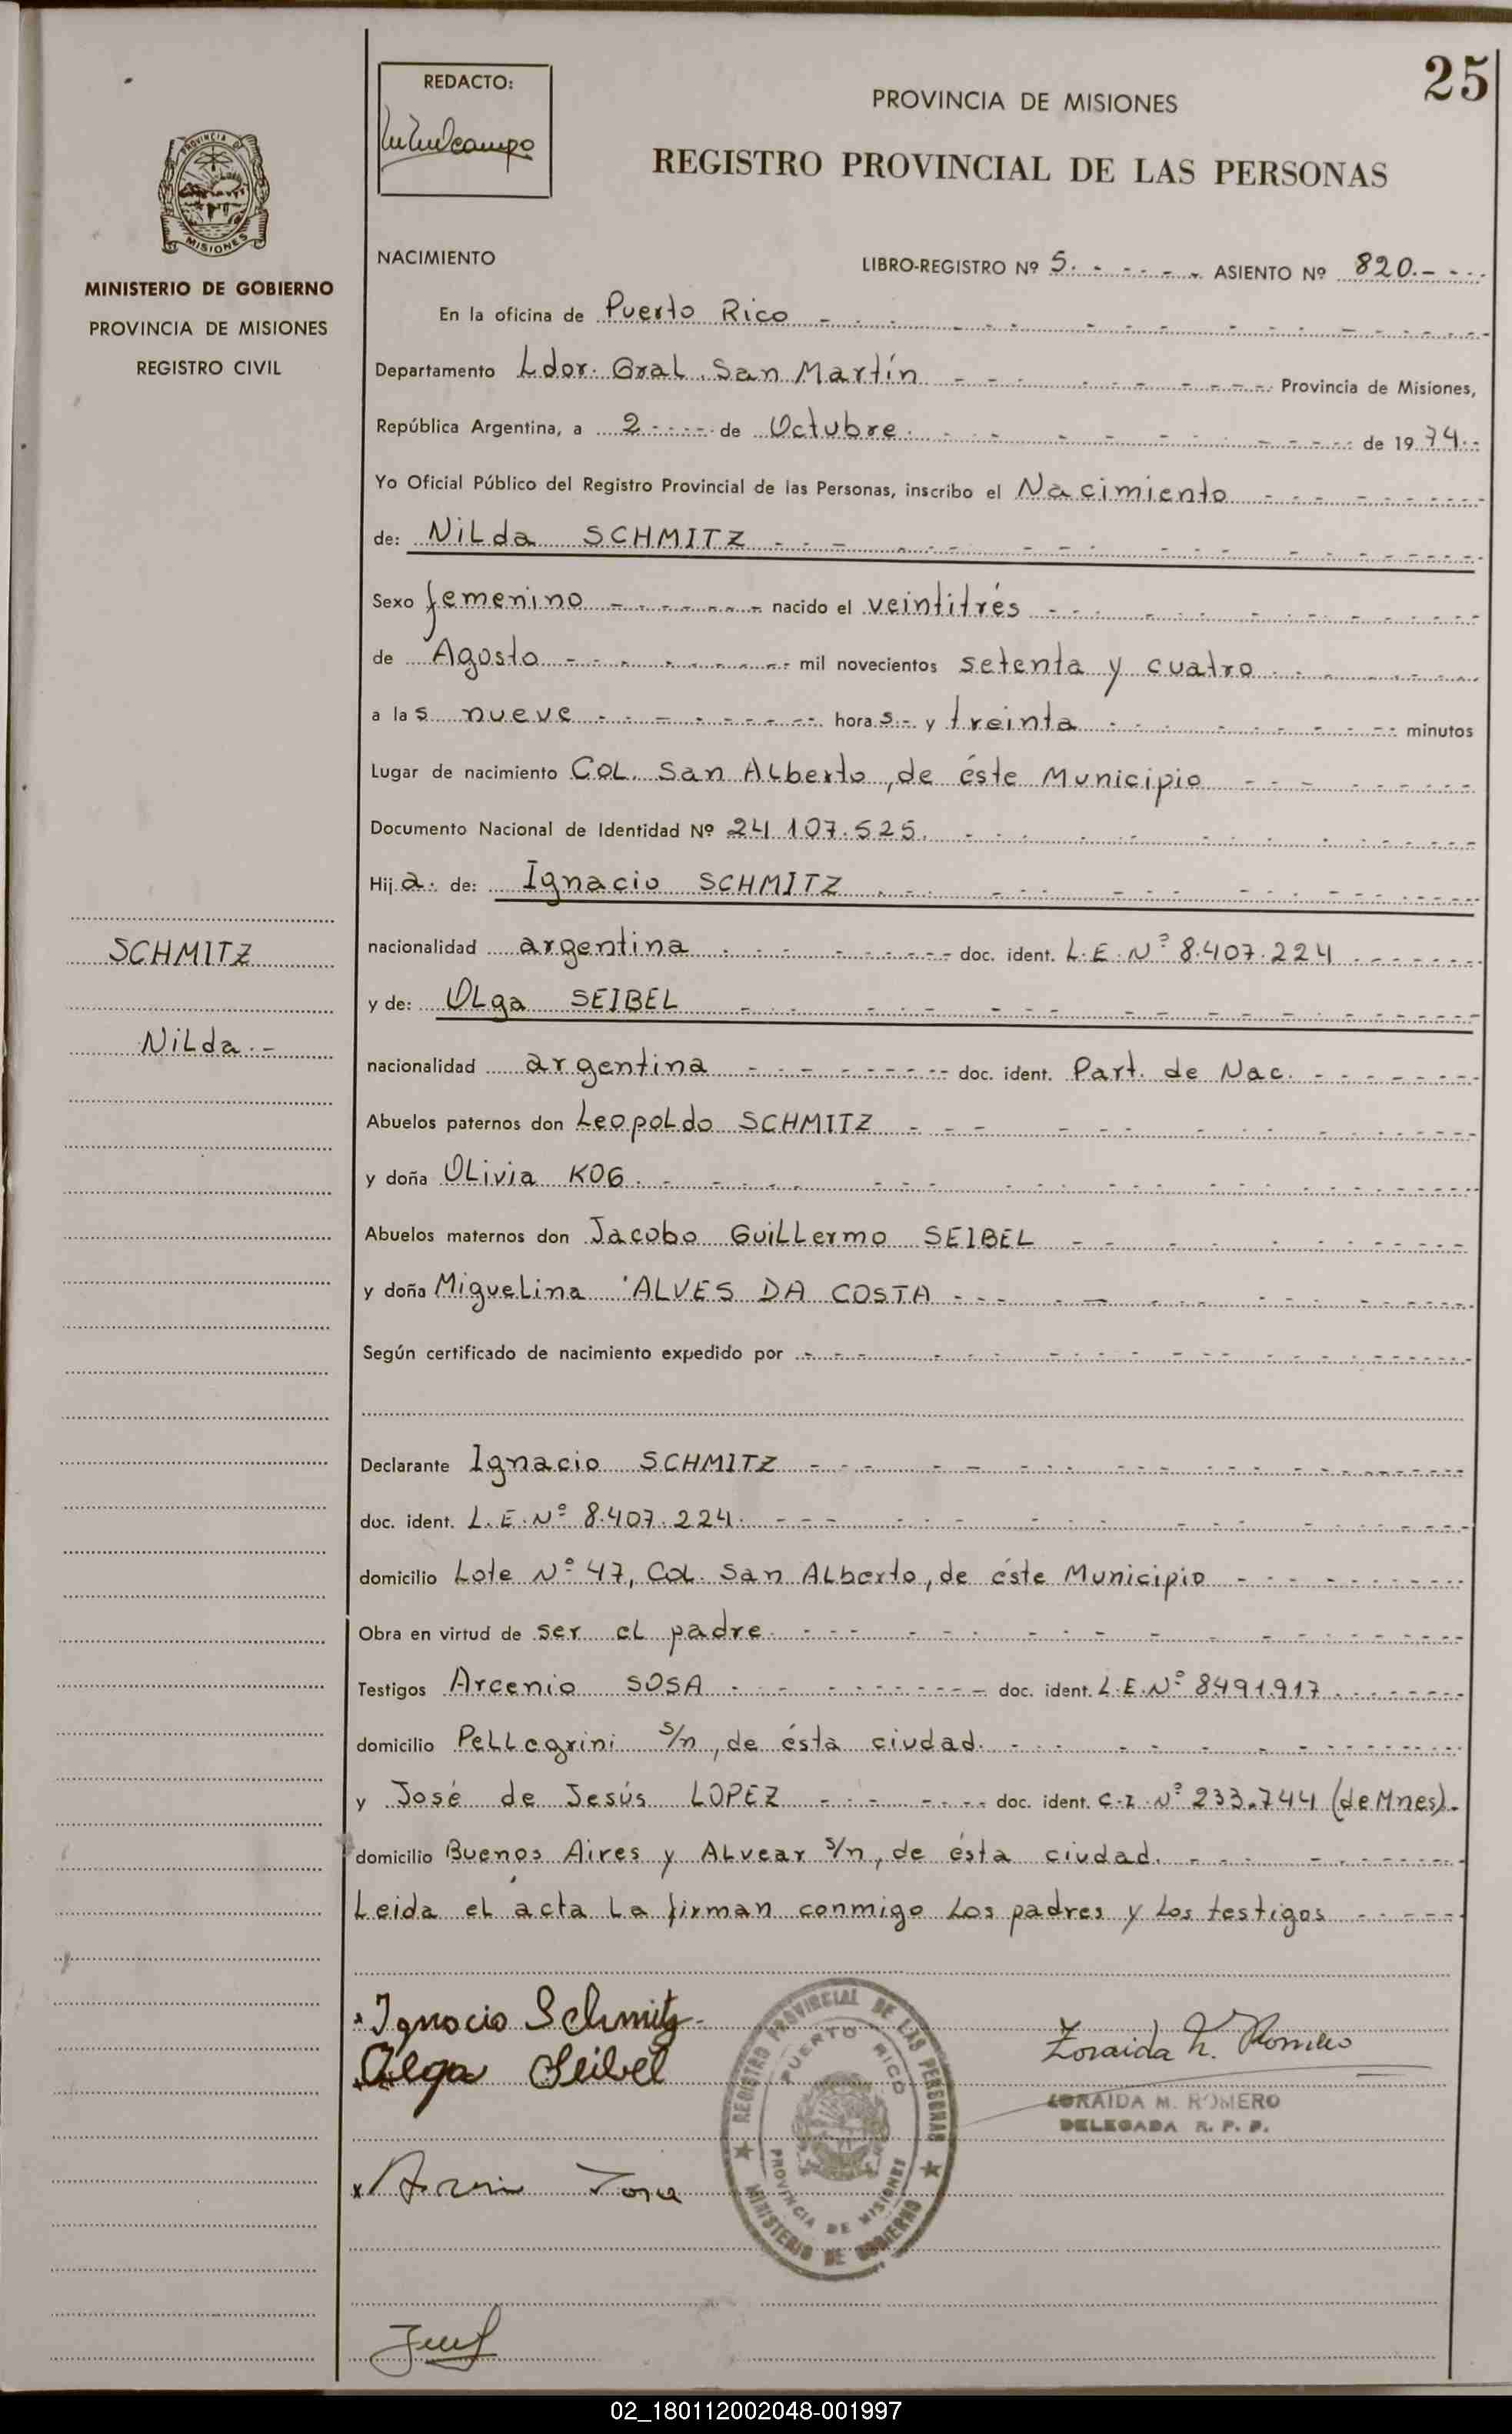 25
REDACTO:
PROVINCIA DE MISIONES
REGISTRO PROVINCIAL DE LAS PERSONAS
PROVINCIA DE
MISIONES
MINISTERIO DE GOBIERNO
PROVINCIA DE MISIONES
REGISTRO CIVIL
NACIMIENTO LIBRO-REGISTRO Nº 5. ASIENTO Nº 820.
En la oficina de Puerto Rico
Departamento Ldor. Gral. San Martín Provincia de Misiones,
República Argentina, a 2 de Octubre de 1974.
Yo Oficial Público del Registro Provincial de las Personas, inscribo el Nacimiento
de: Nilda SCHMITZ
Sexo femenino nacido el veintitrés
de Agosto mil novecientos setenta y cuatro
a las nueve horas y treinta minutos
Lugar de nacimiento Col. San Alberto, de éste Municipio
Documento Nacional de Identidad Nº 24 107.525.
Hija de: Ignacio SCHMITZ
SCHMITZ
nacionalidad argentina doc. ident. L.E. Nº 8.407.224
y de: Olga SEIBEL
Nilda.-
nacionalidad argentina doc. ident. Part. de Nac.
Abuelos paternos don Leopoldo SCHMITZ
y doña Olivia KOG.
Abuelos maternos don Jacobo Guillermo SEIBEL
y doña Miguelina ALVES DA COSTA
Según certificado de nacimiento expedido por
Declarante Ignacio SCHMITZ
doc. ident. L.E. Nº 8.407.224.
domicilio Lote Nº 47, Col. San Alberto, de éste Municipio
Obra en virtud de ser el padre.
Testigos Arcenio SOSA doc. ident. L.E. Nº 8491.917
domicilio Pellegrini s/n, de ésta ciudad.
y José de Jesús LOPEZ doc. ident. C.I. Nº 233.744 (de Mnes).
domicilio Buenos Aires y Alvear s/n, de ésta ciudad.
Leida el acta la firman conmigo los padres y los testigos
Ignacio Schmitz
Olga Seibel
REGISTRO PROVINCIAL DE LAS PERSONAS
PUERTO RICO
PROVINCIA DE MISIONES
MINISTERIO DE GOBIERNO
Zoraida M. Romero
ZORAIDA M. ROMERO
DELEGADA R. P. P.
02_180112002048-001997